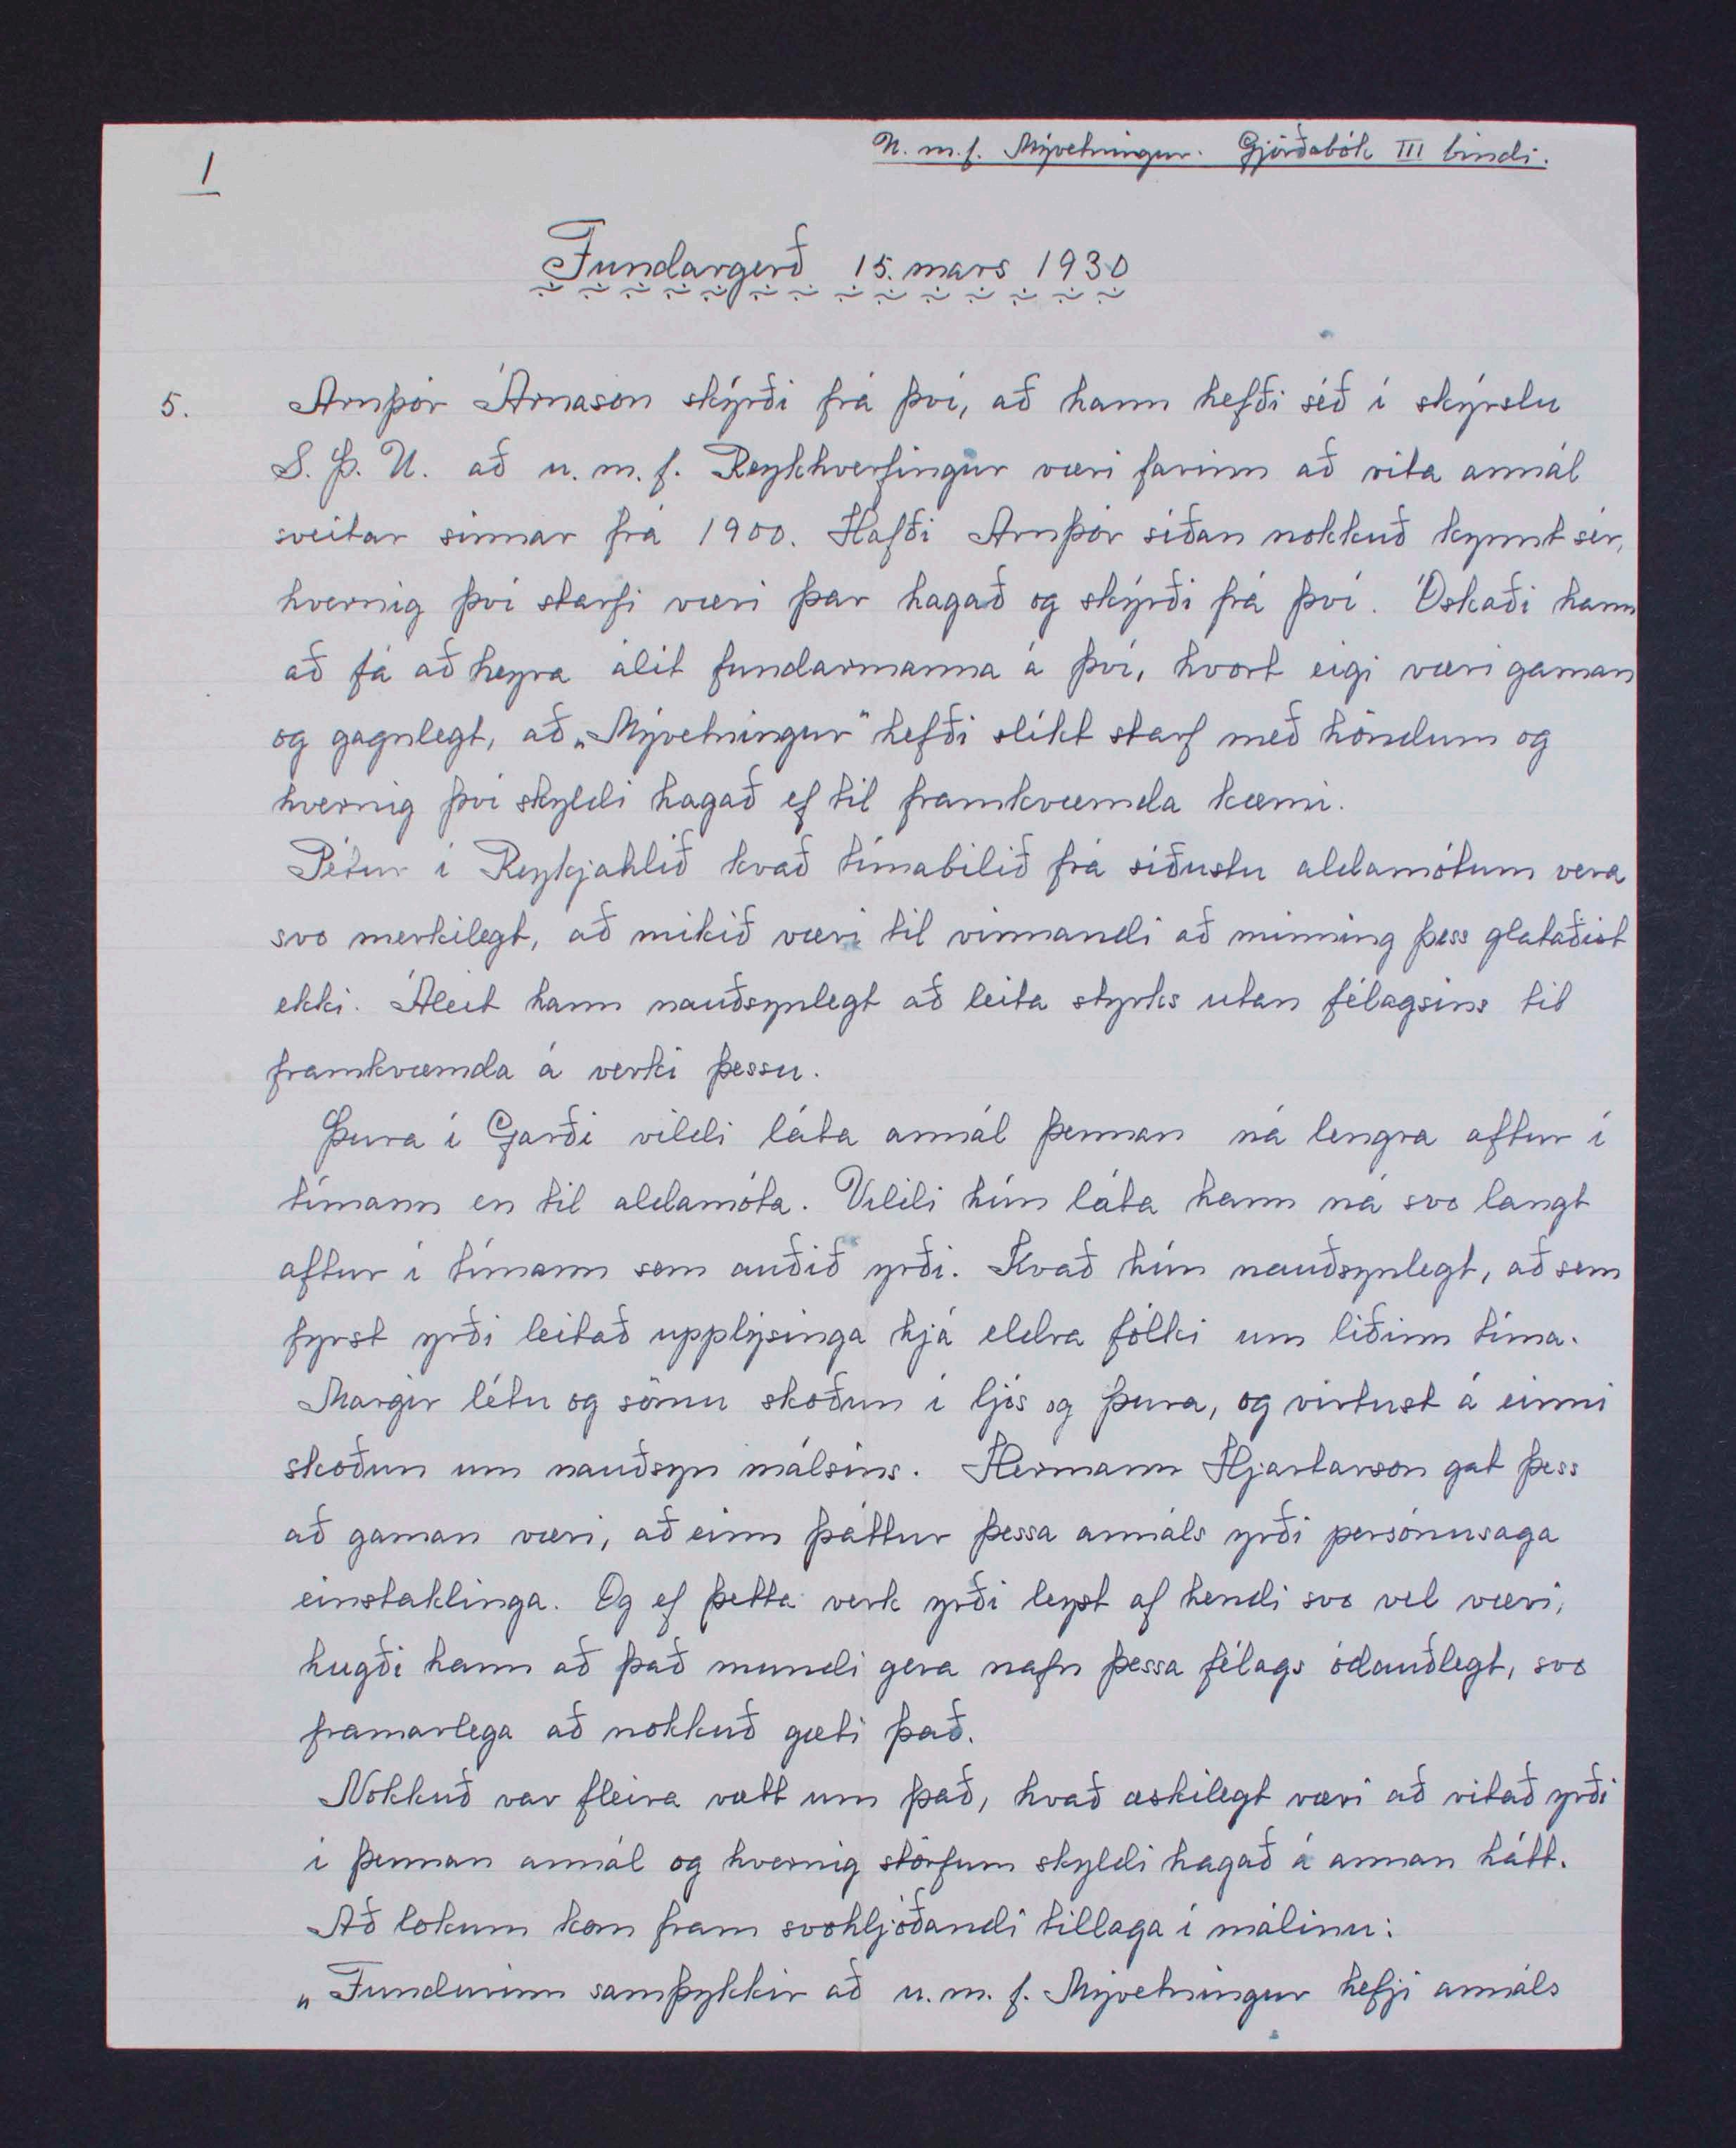 U. m. f. Mývetningur. Gjörðabók III bindi.
1
Fundargerð 15. mars 1930
5. Arnþór Árnason skýrði frá því, að hann hefði séð í skýrslu
S. Þ. U. að u. m. f. Reykhverfingur væri farinn að rita annál
sveitar sinnar frá 1900. Hafði Arnþór síðan nokkuð kynnt sér,
hvernig því starfi væri þar hagað og skýrði frá því. Óskaði hann
að fá að heyra álit fundarmanna á því, hvort eigi væri gaman
og gagnlegt, að „Mývetningur" hefði slíkt starf með höndum og
hvernig því skyldi hagað ef til framkvæmda kæmi.
Pétur í Reykjahlíð kvað tímabilið frá síðustu aldamótum vera
svo merkilegt, að mikið væri til vinnandi að minning þess glataðist
ekki. Áleit hann nauðsynlegt að leita styrks utan félagsins til
framkvæmda á verki þessu.
Þura í Garði vildi láta annál þennan ná lengra aftur í
tímann en til aldamóta. Vildi hún láta hann ná svo langt
aftur í tímann sem auðið yrði. Kvað hún nauðsynlegt, að sem
fyrst yrði leitað upplýsinga hjá eldra fólki um liðinn tíma.
Margir létu og sömu skoðun í ljós og Þura, og virtust á einni
skoðun um nauðsyn málsins. Hermann Hjartarson gat þess
að gaman væri, að einn þáttur þessa annáls yrði persónusaga
einstaklinga. Og ef þetta verk yrði leyst af hendi svo vel væri,
hugði hann að það mundi gera nafn þessa félags ódauðlegt, svo
framarlega að nokkuð gæti það.
Nokkuð var fleira rætt um það, hvað æskilegt væri að ritað yrði
í þennan annál og hvernig störfum skyldi hagað á annan hátt.
Að lokum kom fram svohljóðandi tillaga í málinu:
„Fundurinn samþykkir að u. m. f. Mývetningur hefji annáls